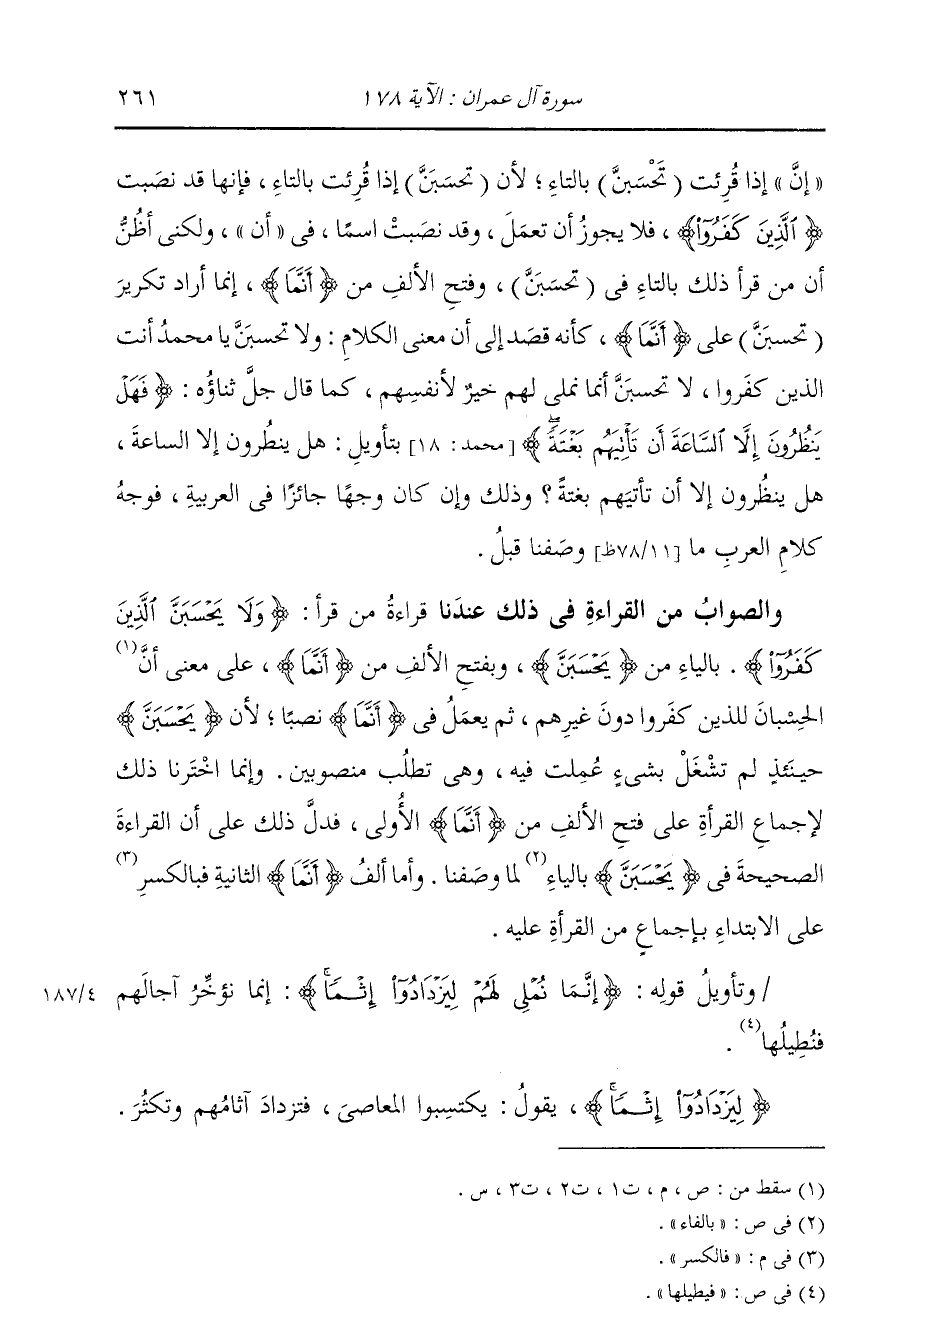 سورة آل عمران : الآية ١٧٨ ٢٦١
«إنَّ» إذا قُرِئت (تَحْسَبنَّ) بالتاءِ؛ لأن (تحسَبَنَّ) إذا قُرِئت بالتاءِ، فإنها قد نصَبت
﴿ٱلَّذِينَ كَفَرُوٓا۟﴾، فلا يجوزُ أن تعمَلَ، وقد نصَبتْ اسمًا، فى «أن»، ولكنى أظُنُّ
أن من قرأ ذلك بالتاءِ فى (تحسَبَنَّ)، وفتح الألفِ من ﴿أَنَّمَا﴾، إنما أراد تكريرَ
(تحسبَنَّ) على ﴿أَنَّمَا﴾، كأنه قصَد إلى أن معنى الكلامِ : ولا تحسبَنَّ يا محمدُ أنت
الذين كفَروا، لا تحسبَنَّ أنما نملى لهم خيرٌ لأنفسِهم، كما قال جلَّ ثناؤُه : ﴿فَهَلْ
يَنظُرُونَ إِلَّا ٱلسَّاعَةَ أَن تَأْتِيَهُم بَغْتَةً ۖ﴾ [محمد: ١٨] بتأويلِ : هل ينظُرون إلا الساعةَ،
هل ينظُرون إلا أن تأتيَهم بغتةً ؟ وذلك وإن كان وجهًا جائزًا فى العربيةِ، فوجهُ
كلامِ العربِ ما [٧٨/١١ظ] وصَفنا قبلُ.
والصوابُ من القراءةِ فى ذلك عندَنا قراءةُ من قرأ : ﴿وَلَا يَحْسَبَنَّ ٱلَّذِينَ
كَفَرُوٓا۟﴾. بالياءِ من ﴿يَحْسَبَنَّ﴾، وبفتحِ الألفِ من ﴿أَنَّمَا﴾، على معنى أنَّ(١)
الحِسْبانَ للذين كفَروا دونَ غيرِهم، ثم يعمَلُ فى ﴿أَنَّمَا﴾ نصبًا؛ لأن ﴿يَحْسَبَنَّ﴾
حينَئذٍ لم تشْغَلْ بشىءٍ عُمِلت فيه، وهى تطلُب منصوبين. وإنما اخْتَرنا ذلك
لإجماعِ القرأةِ على فتحِ الألفِ من ﴿أَنَّمَا﴾ الأُولى، فدلَّ ذلك على أن القراءةَ
الصحيحةَ فى ﴿يَحْسَبَنَّ﴾ بالياءِ(٢) لما وصَفنا. وأما ألفُ ﴿أَنَّمَا﴾ الثانيةِ فبالكسرِ(٣)
على الابتداءِ بإجماعٍ من القرأةِ عليه.
/ وتأويلُ قولِه : ﴿إِنَّمَا نُمْلِى لَهُمْ لِيَزْدَادُوٓا۟ إِثْمًا ۚ﴾ : إنما نؤخِّرُ آجالَهم ١٨٧/٤
فنُطِيلُها(٤).
﴿لِيَزْدَادُوٓا۟ إِثْمًا ۚ﴾، يقولُ : يكتسِبوا المعاصىَ، فتزدادَ آثامُهم وتكثُرَ.
(١) سقط من : ص، م، ت١، ت٢، ت٣، س.
(٢) فى ص : «بالفاء».
(٣) فى م : «فالكسر».
(٤) فى ص : «فيطيلها».